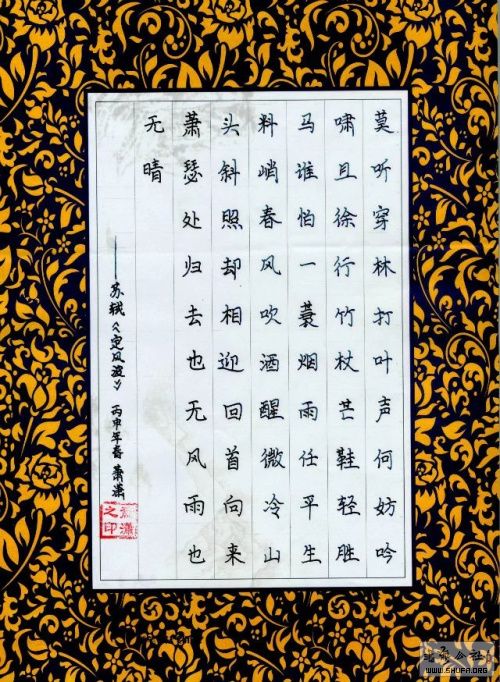 莫听穿林打叶声何妨吟
啸且徐行竹杖芒鞋轻胜
马谁怕一蓑烟雨任平生
料峭春风吹酒醒微冷山
头斜照却相迎回首向来
萧瑟处归去也无风雨也
无晴
——苏轼《定风波》 丙申年春 萧潇
萧潇之印
WWW.SHUFA.ORG